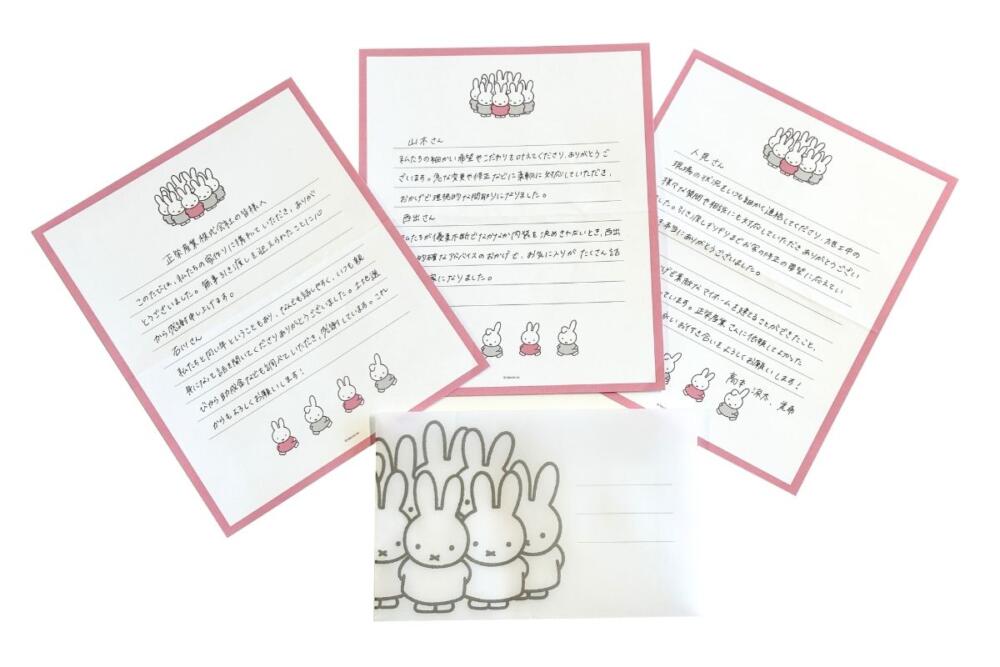 正栄産業株式会社の皆様へ
このたびは、私たちの家作りに携わっていただき、ありが
とうございました。無事引き渡しを迎えられたことに心
から感謝申し上げます。
石川さん
私たちと同い年ということもあり、なんでも話しやすく、いつも親
身になって話を聞いてくださりありがとうございました。土地選
びから助成金なども調べていただき、感謝しています。これ
からもよろしくお願いします！
山本さん
私たちの細かい希望やこだわりを叶えてくださり、ありがとうご
ざいます。急な変更や修正などにも柔軟に対応していただき、
おかげで理想的な間取りになりました。
西出さん
私たちが優柔不断でなかなか内装を決めきれないとき、西出
的確なアドバイスのおかげで、お気に入りが たくさん詰
家になりました。
人見さん
現場の状況をいつも細かく連絡してくださり、力
様々な質問や相談にも対応していただき ありがとうござい
した。引き渡しギリギリまでお家の修正の要望に応えてい
本当にありがとうございました。
ど素敵なマイホームを建てることができたこと、
ています。正栄産業さんに依頼してよかった
長いお付き合いをよろしくお願いします！
高木